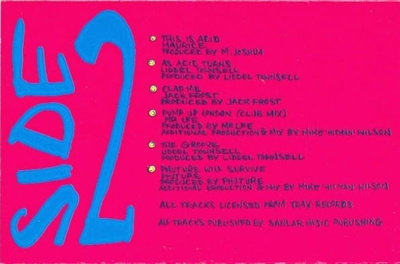 SIDE 2
THIS IS ACID
MAURICE
PRODUCED BY M. JOSHUA
AS ACID TURNS
LIDDEL TOWNSELL
PRODUCED BY LIDDEL TOWNSELL
CLAP ME
JACK FROST
PRODUCED BY JACK FROST
PUMP UP LONDON (CLUB MIX)
MR LEE
PRODUCED BY MR LEE
ADDITIONAL PRODUCTION & MIX BY MIKE HITMAN WILSON
THE GROOVE
LIDDEL TOWNSELL
PRODUCED BY LIDDEL TOWNSELL
PHUTURE WILL SURVIVE
PHUTURE
PRODUCED BY PHUTURE
ADDITIONAL PRODUCTION & MIX BY MIKE HITMAN WILSON
ALL TRACKS LICENSED FROM TRAX RECORDS
ALL TRACKS PUBLISHED BY SANLAR MUSIC PUBLISHING